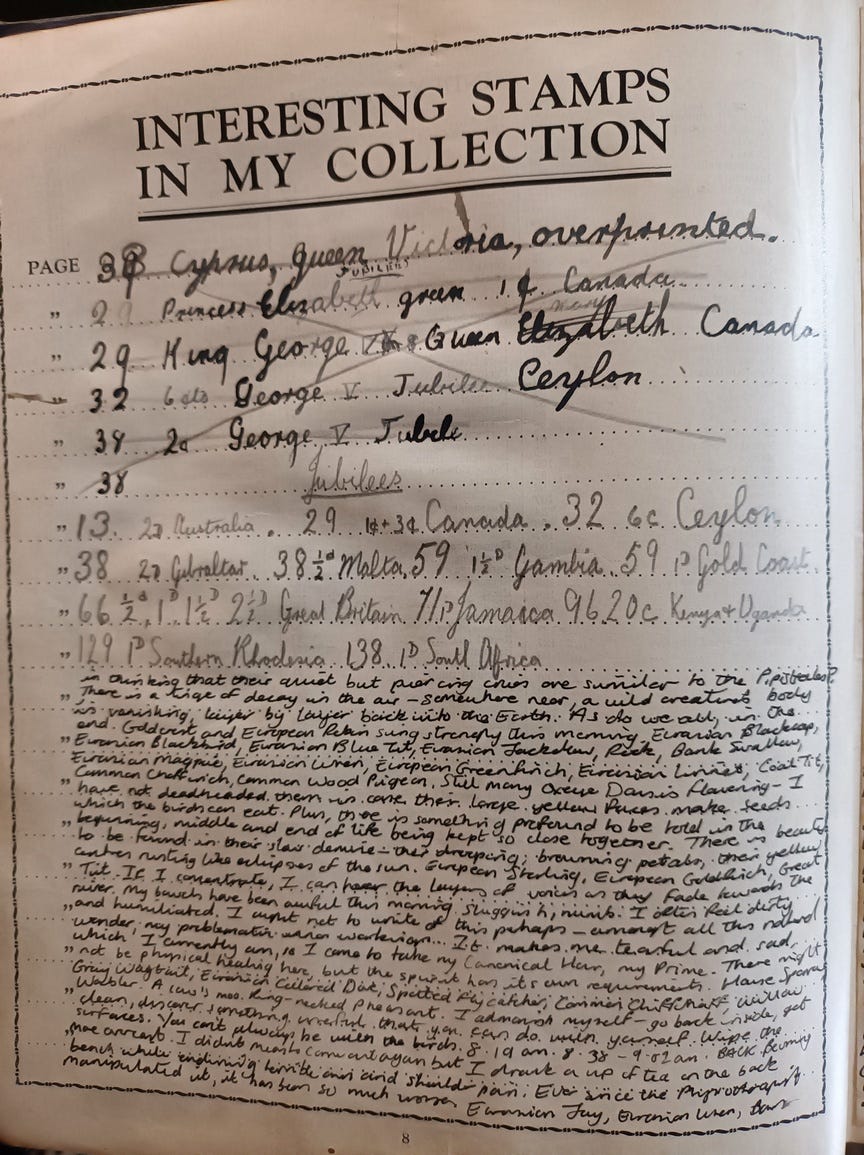 INTERESTING STAMPS
IN MY COLLECTION
PAGE 38 Cyprus, Queen Victoria, overprinted.
JUBILEES
" 29 Princess Elizabeth green 1¢ Canada
Mary
" 29 King George V & Queen Elizabeth Canada
" 32 6cts George V Jubilee Ceylon
" 38 2d George V Jubile
" 38 Jubilees
" 13. 2D Australia. 29 1¢+3¢ Canada. 32 6c Ceylon
" 38 2D Gibraltar. 38 ½d Malta. 59 1½D Gambia. 59 1D Gold Coast.
" 66 ½d, 1D 1½D 2½D Great Britain 71 Jamaica 96 20c Kenya + Uganda
" 129 1D Southern Rhodesia 138 1D South Africa
in thinking that their quiet but piercing cries are similar to the Pipistrelles?
" There is a tinge of decay in the air - somewhere near, a wild creature's body
is vanishing, layer by layer back into the Earth. As do we all, in the
end. Goldcrest and European Robin sung strongly this morning, Eurasian Blackcap,
" Eurasian Blackbird, Eurasian Blue Tit, Eurasian Jackdaw, Rook, Bank Swallow,
Eurasian Magpie, Eurasian Wren, European Greenfinch, Eurasian Linnet, Coal Tit,
" Common Chaffinch, Common Wood Pigeon. Still many Oxeye Daisies flowering - I
have not deadheaded them in case their large yellow faces make seeds
" which the birds can eat. Plus, there is something profound to be told in the
beginning, middle and end of life being kept so close together. There is beauty
" to be found in their slow demise - their drooping, browning petals, their yellow
centres rusting like eclipses of the sun. European Starling, European Goldfinch, Great
" Tit. If I concentrate, I can hear the layers of voices as they fade towards the
river. My bowels have been awful this morning. Sluggish, numb. I often feel dirty
" and humiliated. I ought not to write of this perhaps - amongst all this natural
wonder, my problematic workings... It makes me tearful and sad,
" which I currently am, as I come to take my Canonical Hour, my Prime. There might
not be physical healing here, but the spirit has its own requirements. House Sparrow
" Grey Wagtail, Eurasian Collared Dove, Spotted Flycatcher, Common Chiffchaff, Willow
Warbler. A cow's moo. Ring-necked Pheasant. I admonish myself - go back inside, get
" clean, discover something useful that you can do with yourself. Wipe the
surfaces. You can't always be with the birds. 8.19 am. 8.38 - 9.02 am. BACK facing
" I didn't mean to come out again but I drank a cup of tea on the back
bench while enduring terrible arm and shoulder pain. Ever since the Physiotherapist
manipulated it, it has been so much worse. Eurasian Jay, Eurasian Wren, Barn
8